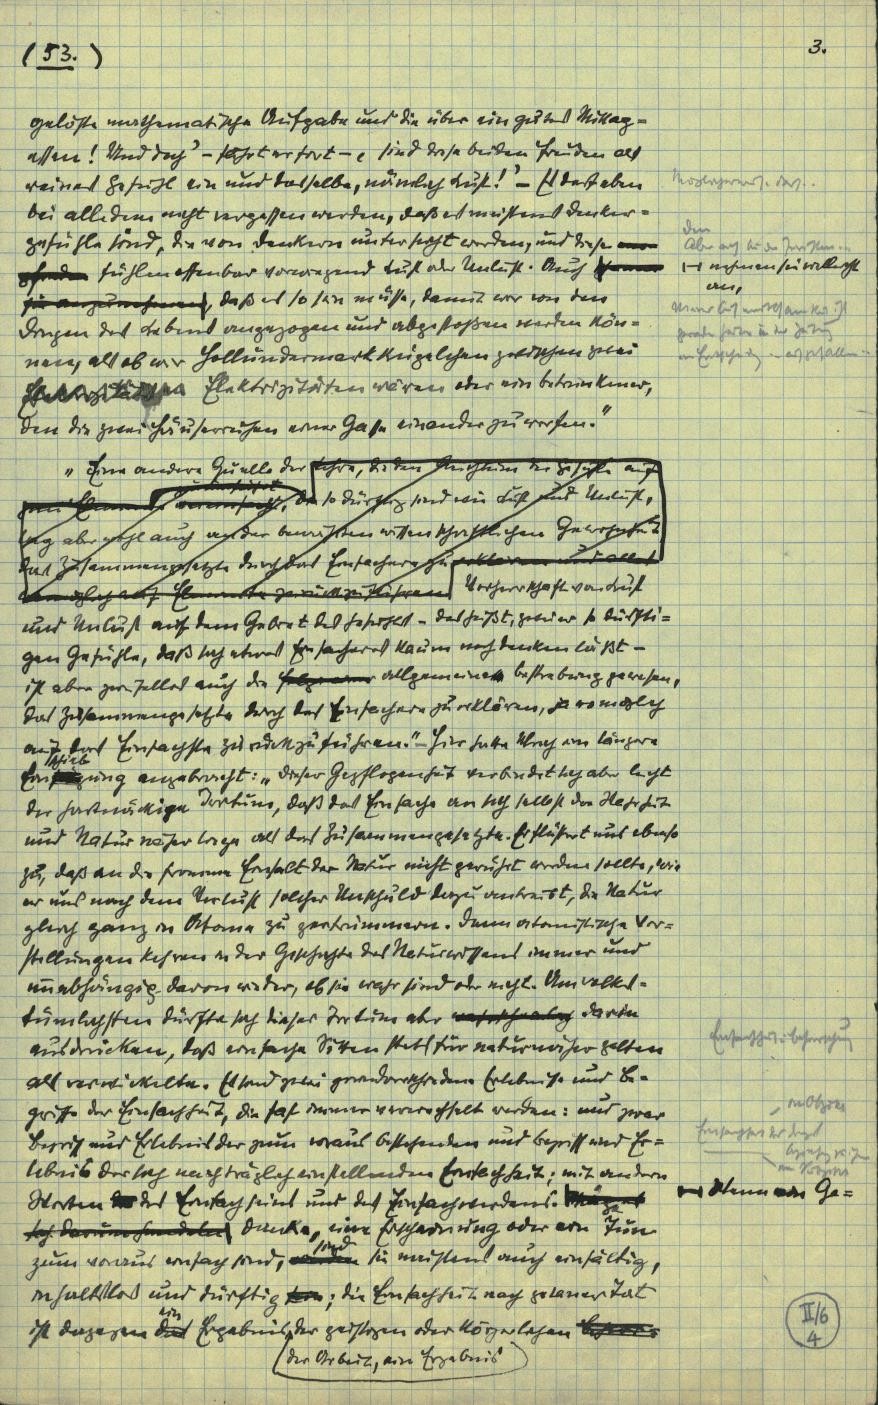 (53.)
3.
gelöste mathematische Aufgabe und die über ein gutes Mittag=
essen! Und doch' – fährt er fort –, sind diese beiden Freuden als
reines Gefühl ein und dasselbe, nämlich Lust!' – Es darf eben
bei alledem nicht vergessen werden, daß es meistens Denker=
gefühle sind, die von Denkern untersucht werden, und diese
fühlen offenbar vorwiegend Lust oder Unlust. Auch
⊢ nehmen sie vielleicht
an,
sie anzunehmen, daß es so sein müsse, damit wir von den
Dingen des Lebens angezogen und abgestoßen werden kön-
nen, als ob wir Hollundermarkkügelchen zwischen zwei
Elektrizitäten wären oder ein betrunkener,
den die zwei Häuserreihen einer Gasse einander zuwerfen."
„Eine andere Quelle der Lehre, die den Reichtum der Gefühle auf
zwei Elemente vereinfacht, die so dürftig sind wie Lust und Unlust,
lag aber wohl auch an der bewährten wissenschaftlichen Gewohnheit
das Zusammengesetzte durch das Einfachere zu erklären und alles
womöglich auf Elemente zurückzuführen Vorherrschaft von Lust
und Unlust auf dem Gebiet des Gefühls – das heißt, zweier so dürfti=
gen Gefühle, daß sich etwas Einfacheres kaum noch denken läßt –
ist aber zweifellos auch die allgemeine Bestrebung gewesen,
das Zusammengesetzte durch das Einfachere zu erklären, ja womöglich
auf das Einfachste zurückzuführen." – Hier hatte Ulrich eine längere
angebracht: „Dieser Gepflogenheit verbindet sich aber leicht
der hartnäckige Irrtum, daß das Einfache an sich selbst der Wahrheit
und Natur näher liege als das Zusammengesetzte. Er flüstert uns ebenso
zu, daß an die fromme Einfalt der Natur nicht gerührt werden sollte, wie
er uns nach dem Verlust solcher Unschuld dazu antreibt, die Natur
gleich ganz in Atome zu zertrümmern. Denn atomistische Vor=
stellungen kehren in der Geschichte des Naturwissens immer und
unabhängig davon wieder, ob sie wahr sind oder nicht. Am volks=
tümlichsten dürfte sich dieser Irrtum aber darin
ausdrücken, daß einfache Sitten stets für naturnäher gelten
als verwickelte. Es sind zwei grundverschiedene Erlebnisse und Be=
griffe der Einfachheit, die fast immer verwechselt werden: und zwar
Begriff und Erlebnis der zum voraus bestehenden und Begriff und Er=
lebnis der sich nachträglich einstellenden Einfachheit; mit andern
Worten des Einfachseins und des Einfachwerdens.
⊢ Wenn ein Ge=
danke, eine Erscheinung oder ein Tun
zum voraus einfach sind, sind sie meistens auch einfältig,
inhaltslos und dürftig; die Einfachheit nach getaner Tat
ist dagegen ein Ergebnis der geistigen oder körperlichen
der Arbeit, ein Ergebnis
II/6
4